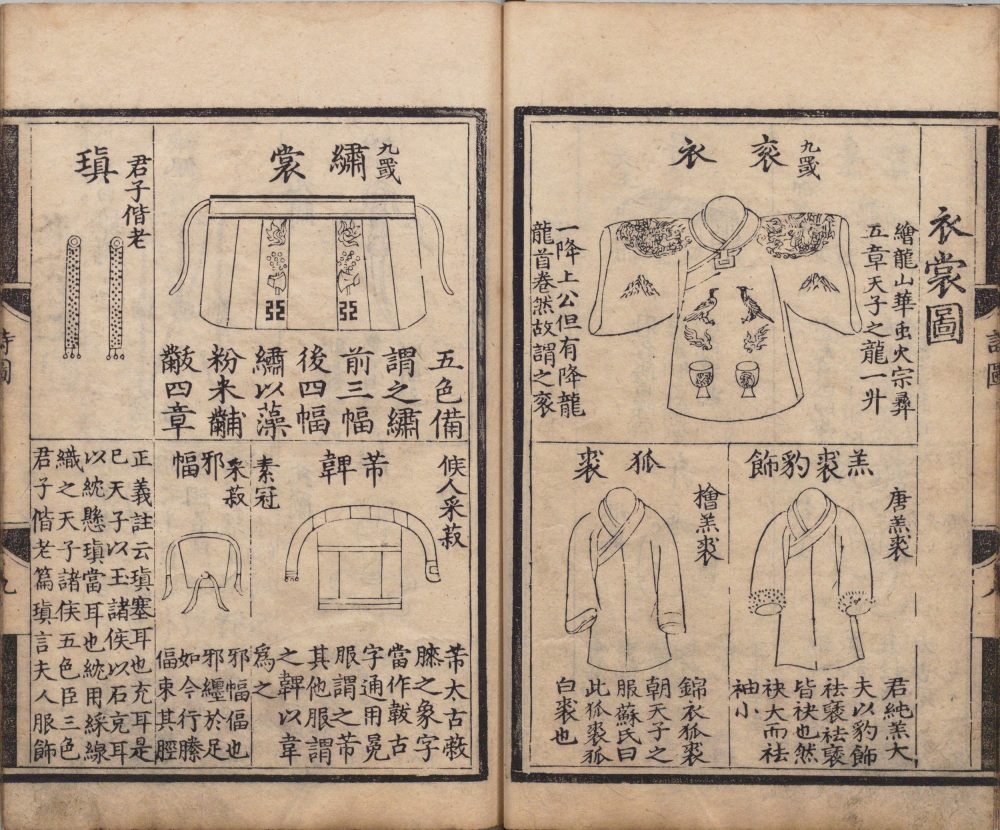 衣裳圖
九罭
袞衣
繪龍山華虫火宗彝
五章天子之龍一升
一降上公但有降龍
龍首卷然故謂之袞
羔裘豹飾
唐羔裘
君純羔大
夫以豹飾
袪褎袪褎
皆袂也然
袂大而袪
袖小
狐裘
檜羔裘
錦衣狐裘
朝天子之
服蘇氏曰
此狐裘狐
白裘也
九罭
繡裳
五色備
謂之繡
前三幅
後四幅
繡以藻
粉米黼
黻四章
君子偕老
瑱
侯人采菽
芾韠
素冠
芾太古蔽
膝之象字
當作韍古
字通用冕
服謂之芾
其他服謂
之韠以韋
爲之
采菽
邪幅
邪幅偪也
邪纏於足
如今行縢
偪束其脛
正義註云瑱塞耳也充耳是
已天子以玉諸侯以石克耳
以紞懸瑱當耳也紞用綵線
織之天子諸侯五色臣三色
君子偕老篇瑱言夫人服飾